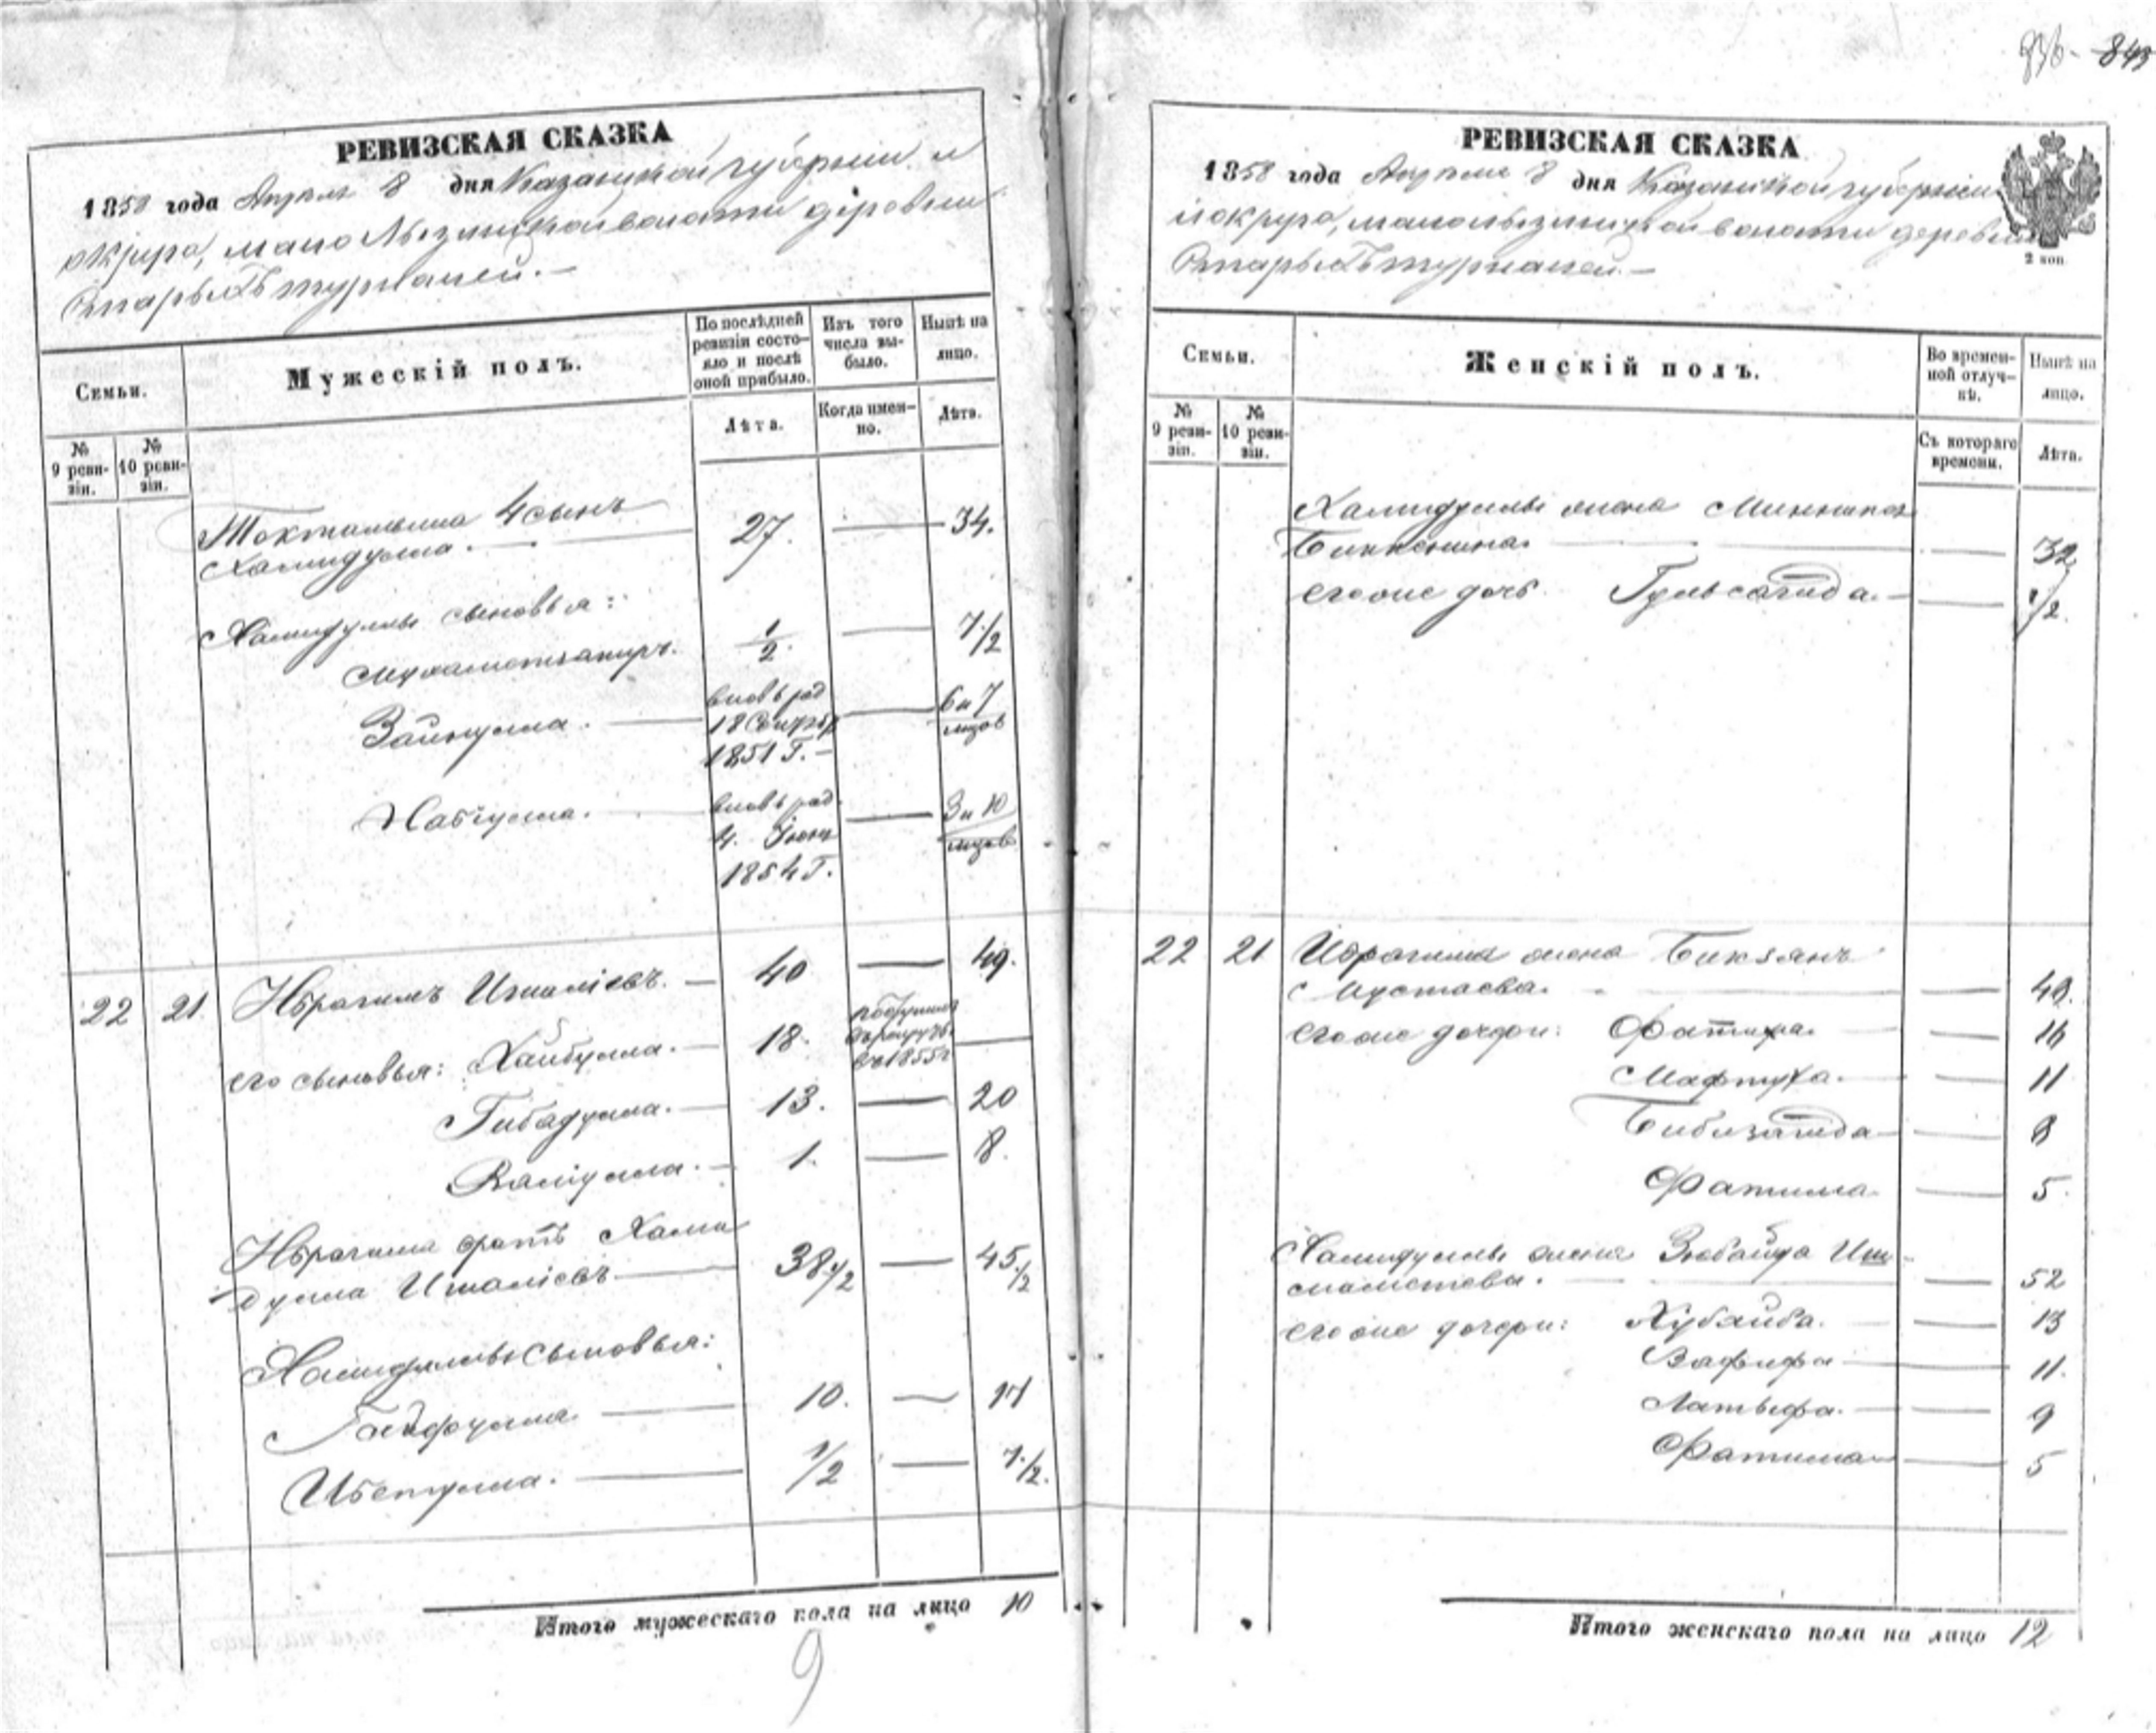 843
РЕВИЗСКАЯ СКАЗКА
1858 года Апреля 8 дня Казанской губернии и
округа, мало Лызинской волости деревни
Старыхъ
Семьи.
Мужескій полъ.
По послѣдней ревизіи состояло и послѣ оной прибыло.
Изъ того числа выбыло.
Нынѣ на лицо.
Лѣта.
Когда именно.
Лѣта.
№ 9 ревизіи.
№ 10 ревизіи.
Токталыша 4 сынъ
Хамидулла. — 27. — 34.
Хамидуллы сыновья:
Мухаметзакиръ. 1/2. — 7 1/2
Зайнулла. — вновь род 18 Сентябр 1851 Г. — 6 и 7 мцов
Набіулла. вновь род. 4. Іюня 1854 Г. — 3 и 10 мцов
22 21 Ибрагимъ Ишаліевъ. — 40 — 49.
его сыновья: Хайбулла. — 18. въ рекруты въ 1855 г —
Гибадулла. — 13. — 20
Валіулла. — 1. — 8.
Ибрагима братъ Хами
дулла Ишаліевъ — 38 1/2 — 45 1/2
Хамидуллы сыновья:
10. — 17
1/2 — 7 1/2.
Итого мужескаго пола на лицо 10
9
РЕВИЗСКАЯ СКАЗКА
1858 года Апреля 8 дня Казанской губерніи
и округа, малолызинской волости деревни
Старыхъ
2 коп
Семьи.
Женскій полъ.
Во временной отлучкѣ.
Нынѣ на лицо.
№ 9 ревизіи.
№ 10 ревизіи.
Съ котораго времени.
Лѣта.
Хамидуллы жена
— 32
его же дочь Гульсагида. — 1/2.
22 21 Ибрагима жена Бикзянъ
Мустаева. — 48.
его же дочери: — 16
Мафтуха. — 11
Бибизагида — 8
Фатима — 5.
Хамидуллы жена Зюбайда
— 52
его же дочери: Хубайба. — 13
Вафифа — 11.
Латыфа. — 9
Фатима — 5
Итого женскаго пола на лицо 12